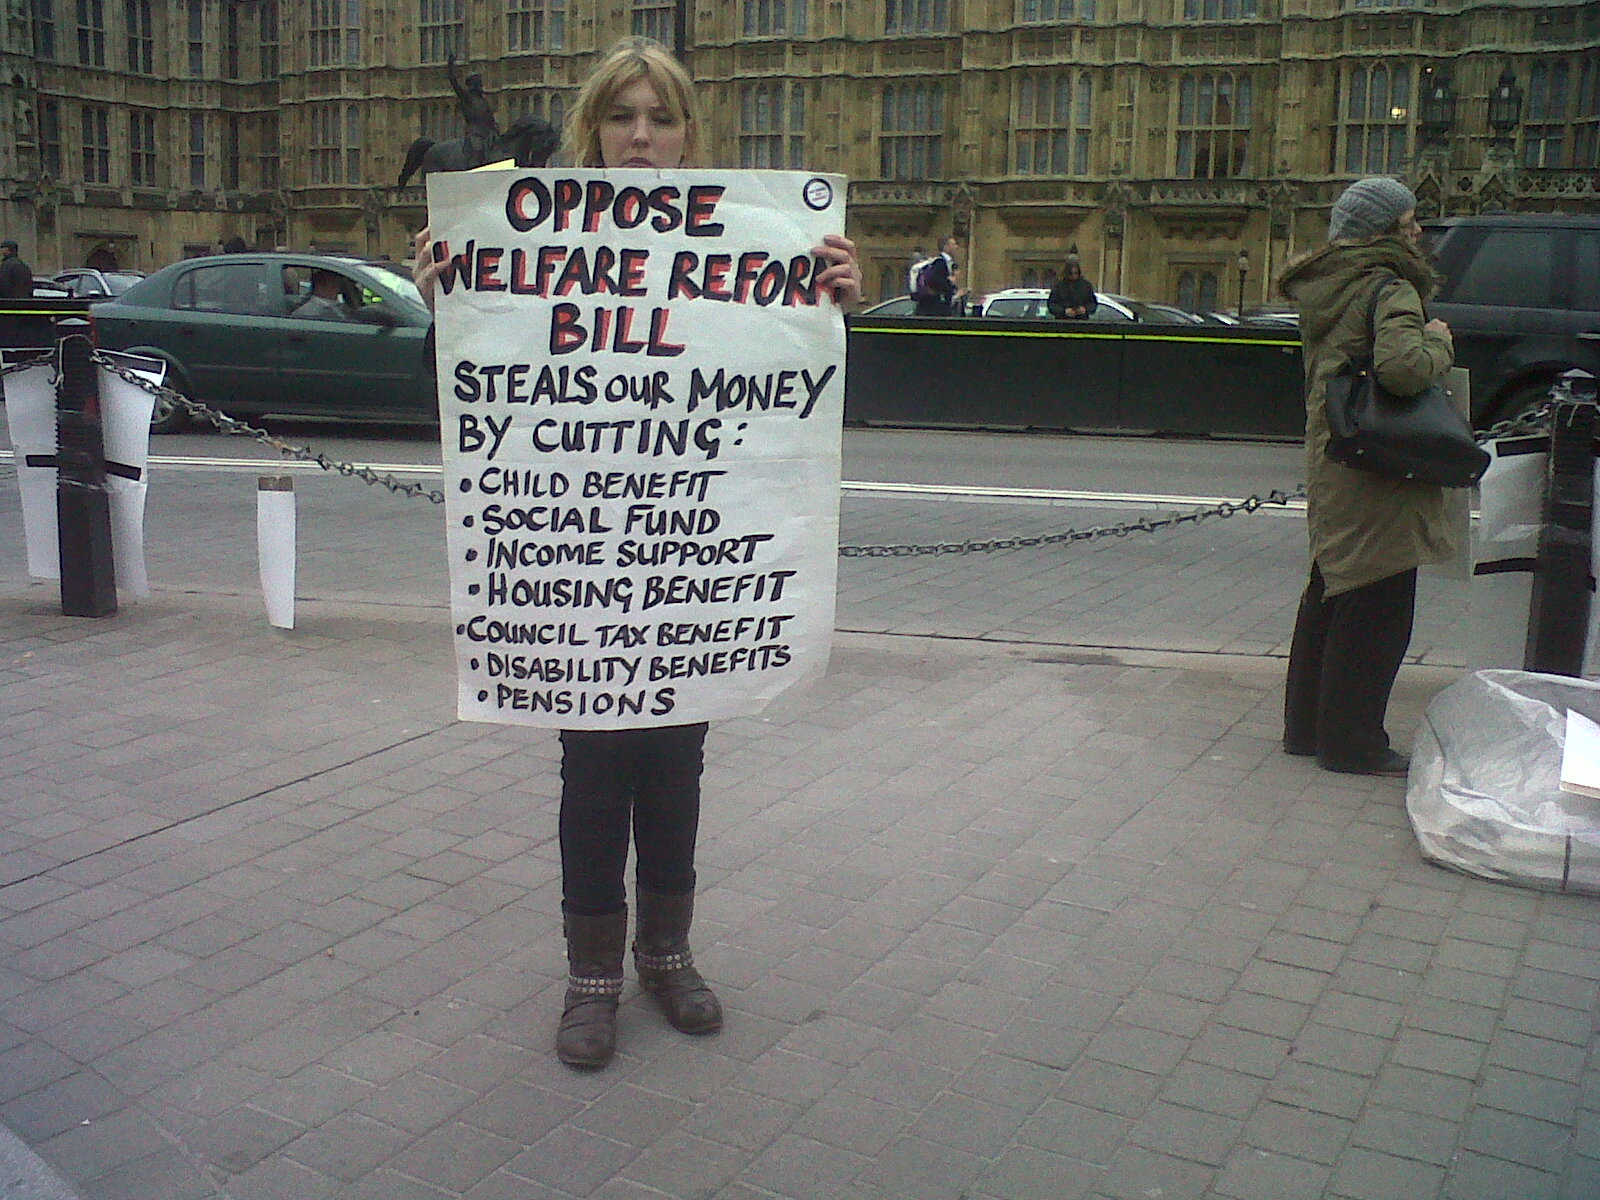 OPPOSE
WELFARE REFORM
BILL
STEALS OUR MONEY
BY CUTTING:
• CHILD BENEFIT
• SOCIAL FUND
• INCOME SUPPORT
• HOUSING BENEFIT
• COUNCIL TAX BENEFIT
• DISABILITY BENEFITS
• PENSIONS